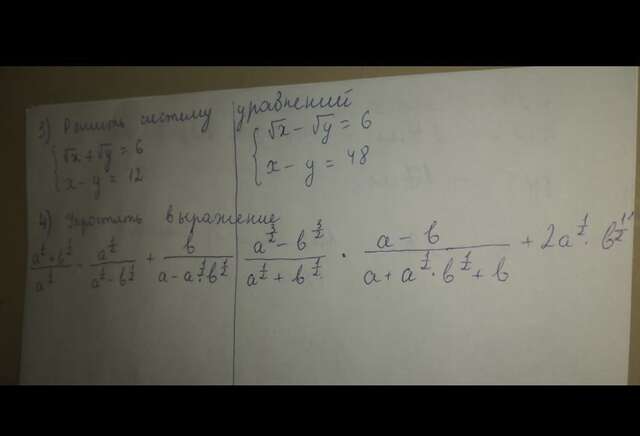 3) Решить систему уравнений
{ √x + √y = 6
x - y = 12
{ √x - √y = 6
x - y = 48
4) Упростить выражение
(a^{1/2} + b^{1/2})/a^{1/2} · a^{1/2}/(a^{1/2} - b^{1/2}) + b/(a - a^{1/2}·b^{1/2})
(a^{3/2} - b^{3/2})/(a^{1/2} + b^{1/2}) · (a - b)/(a + a^{1/2}·b^{1/2} + b) + 2a^{1/2}·b^{1/2}